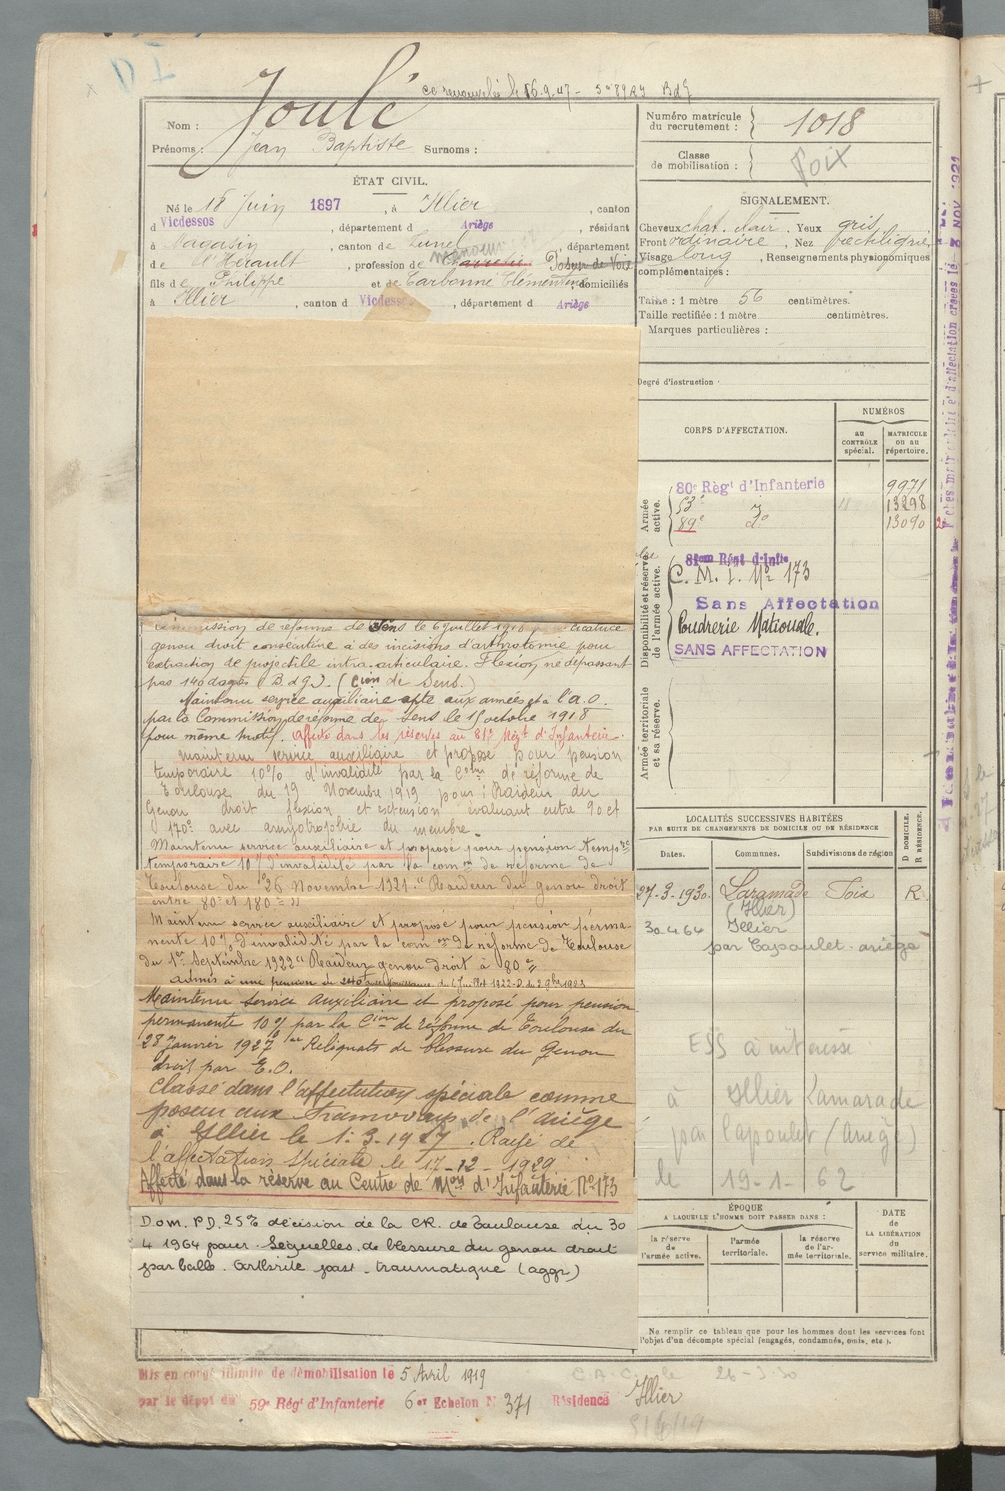 Joulé
Nom :
Prénoms : Jean Baptiste Surnoms :
Numéro matricule
du recrutement : 1018
Classe
de mobilisation :
Foix
ÉTAT CIVIL.
Né le 18 Juin 1897, à Illier, canton
d Vicdessos, département d Ariège, résidant
à Magasin, canton de Lunel, département
de l'Hérault, profession de manoeuvre
fils de Philippe et de Carbonne Clémentine, domiciliés
à Illier, canton d Vicdessos, département d Ariège
SIGNALEMENT.
Cheveux chat. clair. Yeux gris
Front ordinaire, Nez rectiligne
Visage long, Renseignements physionomiques
complémentaires :
Taille : 1 mètre 56 centimètres.
Taille rectifiée : 1 mètre centimètres.
Marques particulières :
Degré d'instruction
CORPS D'AFFECTATION.
NUMÉROS
AU CONTRÔLE spécial.
MATRICULE OU AU répertoire.
Armée active.
80e Régt d'Infanterie 9971
53e d° 13298
89e d° 13090
Disponibilité et réserve de l'armée active.
81eme Régt d'Infie
C. M. I. No 173
Sans Affectation
Poudrerie Nationale.
SANS AFFECTATION
Armée territoriale et sa réserve.
commission de réforme de Sens le 6 juillet 1918 cicatrice
genou droit consécutive à des incisions d'arthrotomie pour
extraction de projectile intra-articulaire. Flexion ne dépassant
pas 140 dagrés (B.d.g.). (Cion de Sens.)
Maintenu service auxiliaire apte aux armées et à l'a.o.
par la Commission de réforme de Sens le 15 octobre 1918
pour même motif. Affecté dans les réserves au 81e Régt d'Infanterie.
maintenu service auxiliaire et proposé pour pension
temporaire 10% d'invalidité par la Con de réforme de
Toulouse du 19 Novembre 1919 pour : Raideur du
Genou droit flexion et extension évoluant entre 90 et
170° avec amyotrophie du membre.
Maintenu service auxiliaire et proposé pour pension
temporaire 10% d'invalidité par la com on de réforme de
Toulouse du 26 Novembre 1921. "Raideur du genou droit
entre 80° et 180° "
Maintenu service auxiliaire et proposé pour pension perma-
nente 10% d'invalidité par la com on de réforme de Toulouse
du 1er Septembre 1922 "Raideur genou droit à 80° "
admis à une pension de 240f
Maintenu service auxiliaire et proposé pour pension
permanente 10% par la Cion de réforme de Toulouse du
28 Janvier 1927 Reliquats de blessure du Genou
droit par E.O.
Classé dans l'affectation spéciale comme
poseur aux tramways de l'ariège
à Illier le 1.3.1927. Rayé de
l'affectation spéciale le 17-12-1929
Affecté dans la réserve au Centre de Mon d'Infanterie No 173
Dom. PD. 25% décision de la CR. de Toulouse du 30
4 1964 pour. Séquelles de blessure du genou droit
par balle. Arthrite post-traumatique (aggr)
LOCALITÉS SUCCESSIVES HABITÉES
PAR SUITE DE CHANGEMENTS DE DOMICILE OU DE RÉSIDENCE
Dates. Communes. Subdivisions de région
D DOMICILE. R RÉSIDENCE.
27-3-1930. Laramade Foix R
(Illier)
30 4 64 Illier
par Capoulet. ariège
ESS à intéressé
à Illier Lamarade
par Capoulet (Ariège)
le 19-1-62
ÉPOQUE
A LAQUELLE L'HOMME DOIT PASSER DANS :
la réserve de l'armée active.
l'armée territoriale.
la réserve de l'armée territoriale.
DATE de LA LIBÉRATION du service militaire.
Ne remplir ce tableau que pour les hommes dont les services font
l'objet d'un décompte spécial (engagés, condamnés, omis, etc.).
Mis en congé illimité de démobilisation le 5 Avril 1919
par le dépôt du 59e Rég' d'Infanterie 6er Echelon N° 371 Résidence Illier